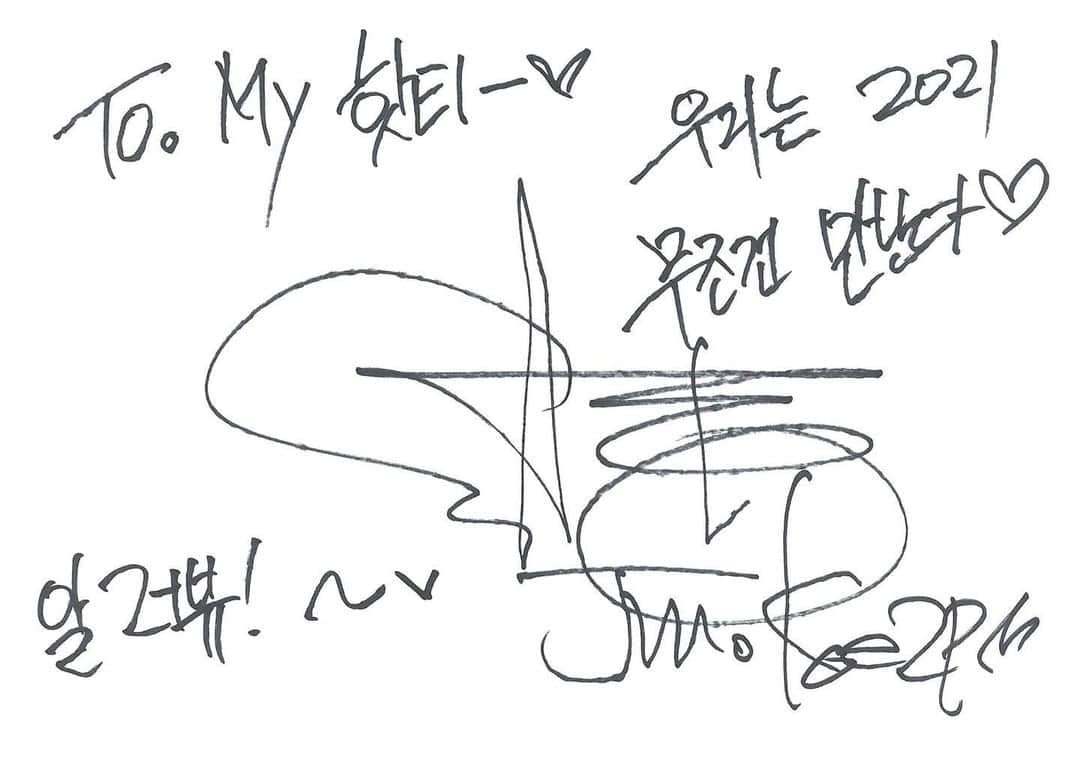 To. My 핫티-♡
우리는 2021
무조건 만난다♡
알러뷰! ~